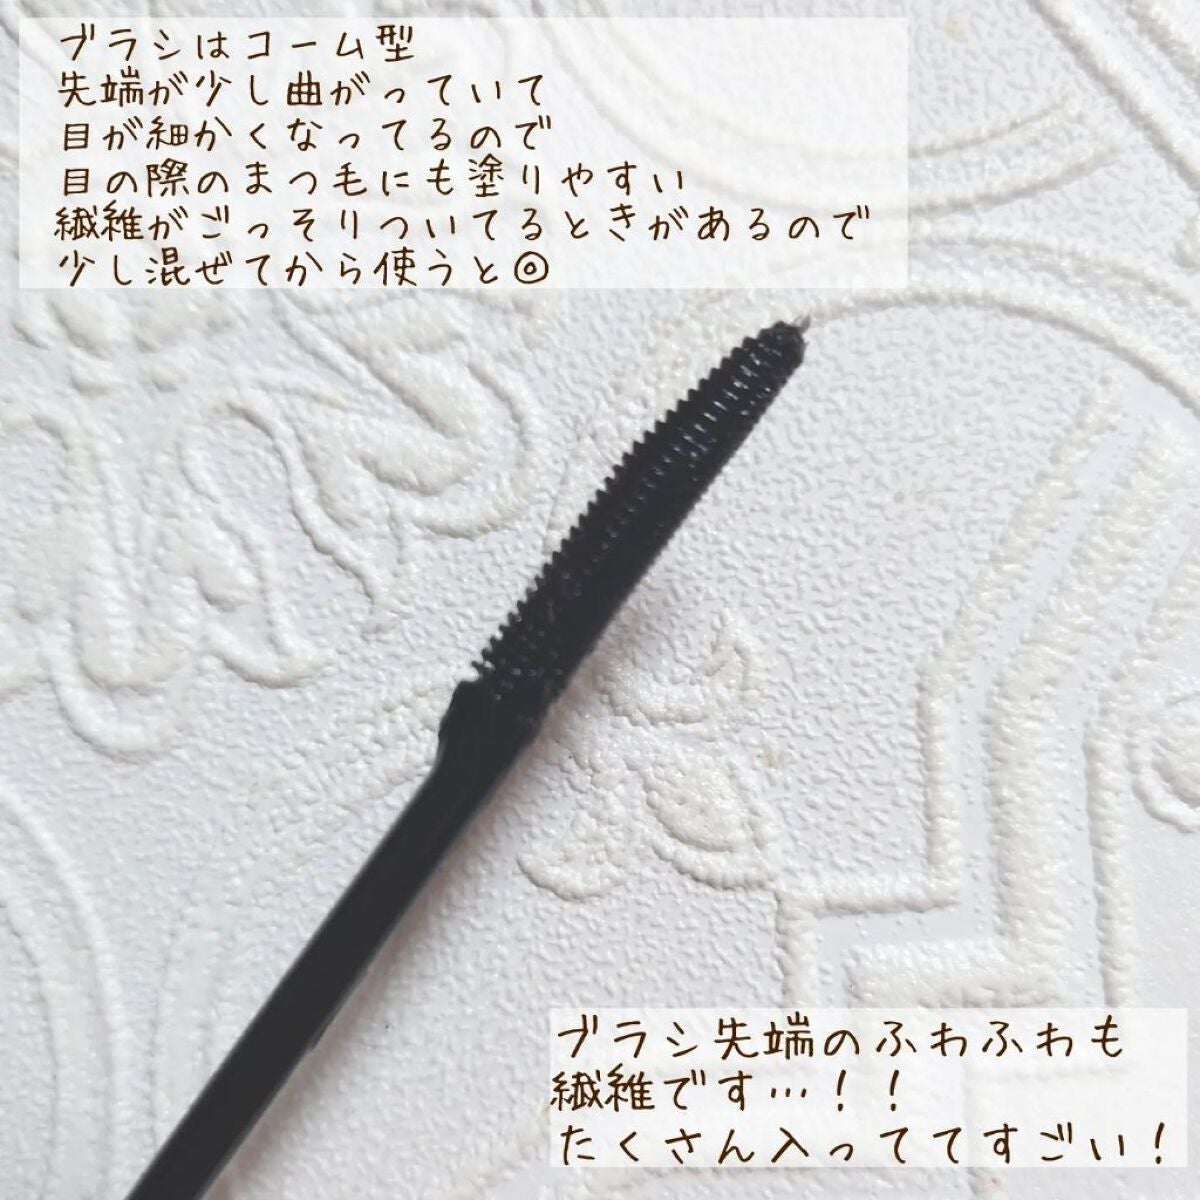 ブラシはコーム型
先端が少し曲がっていて
目が細かくなってるので
目の際のまつ毛にも塗りやすい
繊維がごっそりついてるときがあるので
少し混ぜてから使うと◎
ブラシ先端のふわふわも
繊維です…！！
たくさん入っててすごい！